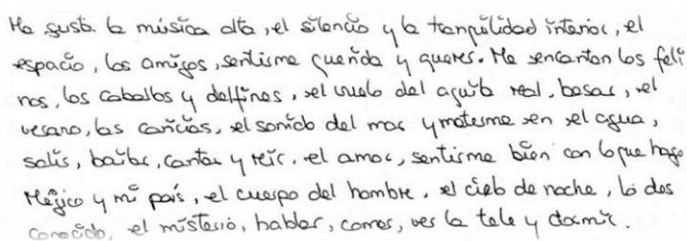 Me gusta la música alta, el silencio y la tranquilidad interior, el
espacio, los amigos, sentirme querida y querer. Me encantan los feli
nos, los caballos y delfines, el vuelo del aguila real, besar, el
verano, las caricias, el sonido del mar y meterme en el agua,
salir, bailar, cantar y reir, el amor, sentirme bien con lo que hago
Mégico y mi país, el cuerpo del hombre, el cielo de noche, lo des
conocido, el misterio, hablar, comer, ver la tele y dormir.